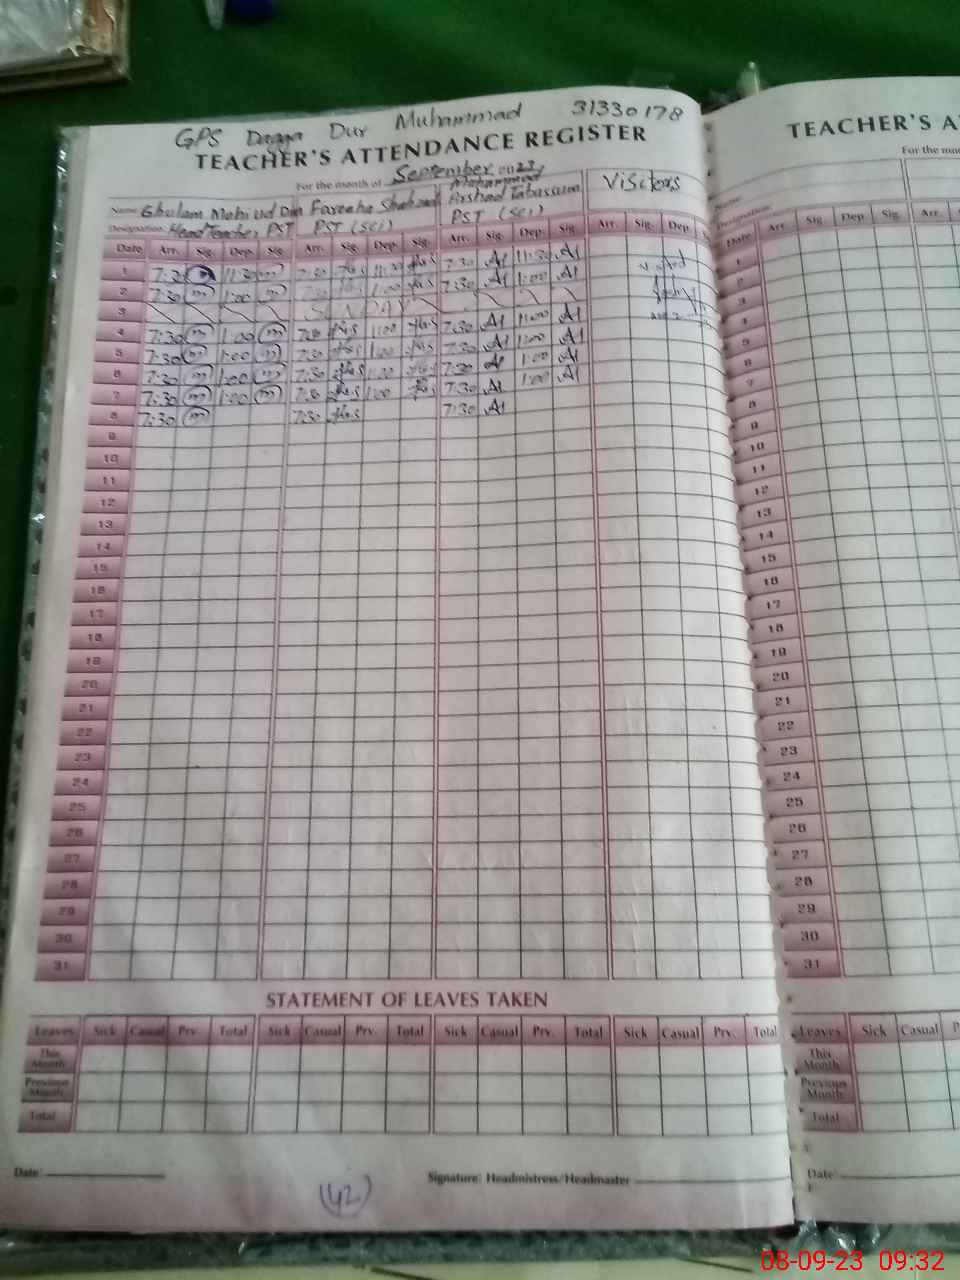 GPS Dagga Dur Muhammad 31330178
TEACHER'S ATTENDANCE REGISTER
For the month of September on 23
Name Ghulam Mohi ud Din Fareeha Shahzad Mohammad Arshad Tabassum Visitors
Designation Head Teacher PST PST (Sci) PST (Sci)
Date Arr. Sig. Dep. Sig. Arr. Sig. Dep. Sig. Arr. Sig. Dep. Sig. Arr. Sig. Dep. S
1 7:30 11:30 7:30 11:30 7:30 At 11:30 At
2 7:30 1:00 7:30 1:00 7:30 At 1:00 At
3 SUNDAY
4 7:30 1:00 7:30 1:00 7:30 At 1:00 At
5 7:30 1:00 7:30 1:00 7:30 At 1:00 At
6 7:30 1:00 7:30 1:00 7:30 At 1:00 At
7 7:30 1:00 7:30 1:00 7:30 At 1:00 At
8 7:30 7:30 7:30 At
9
10
11
12
13
14
15
16
17
18
19
20
21
22
23
24
25
26
27
28
29
30
31
STATEMENT OF LEAVES TAKEN
Leaves Sick Casual Prv. Total Sick Casual Prv. Total Sick Casual Prv. Total Sick Casual Prv. Total
This Month
Previous Month
Total
Date: Signature: Headmistress/Headmaster
(42)
TEACHER'S A
For the mo
Name
Designation
Date Arr. Sig. Dep. Sig. Arr.
1
2
3
4
5
6
7
8
9
10
11
12
13
14
15
16
17
18
19
20
21
22
23
24
25
26
27
28
29
30
31
Leaves Sick Casual P
This Month
Previous Month
Total
Date:
08-09-23 09:32